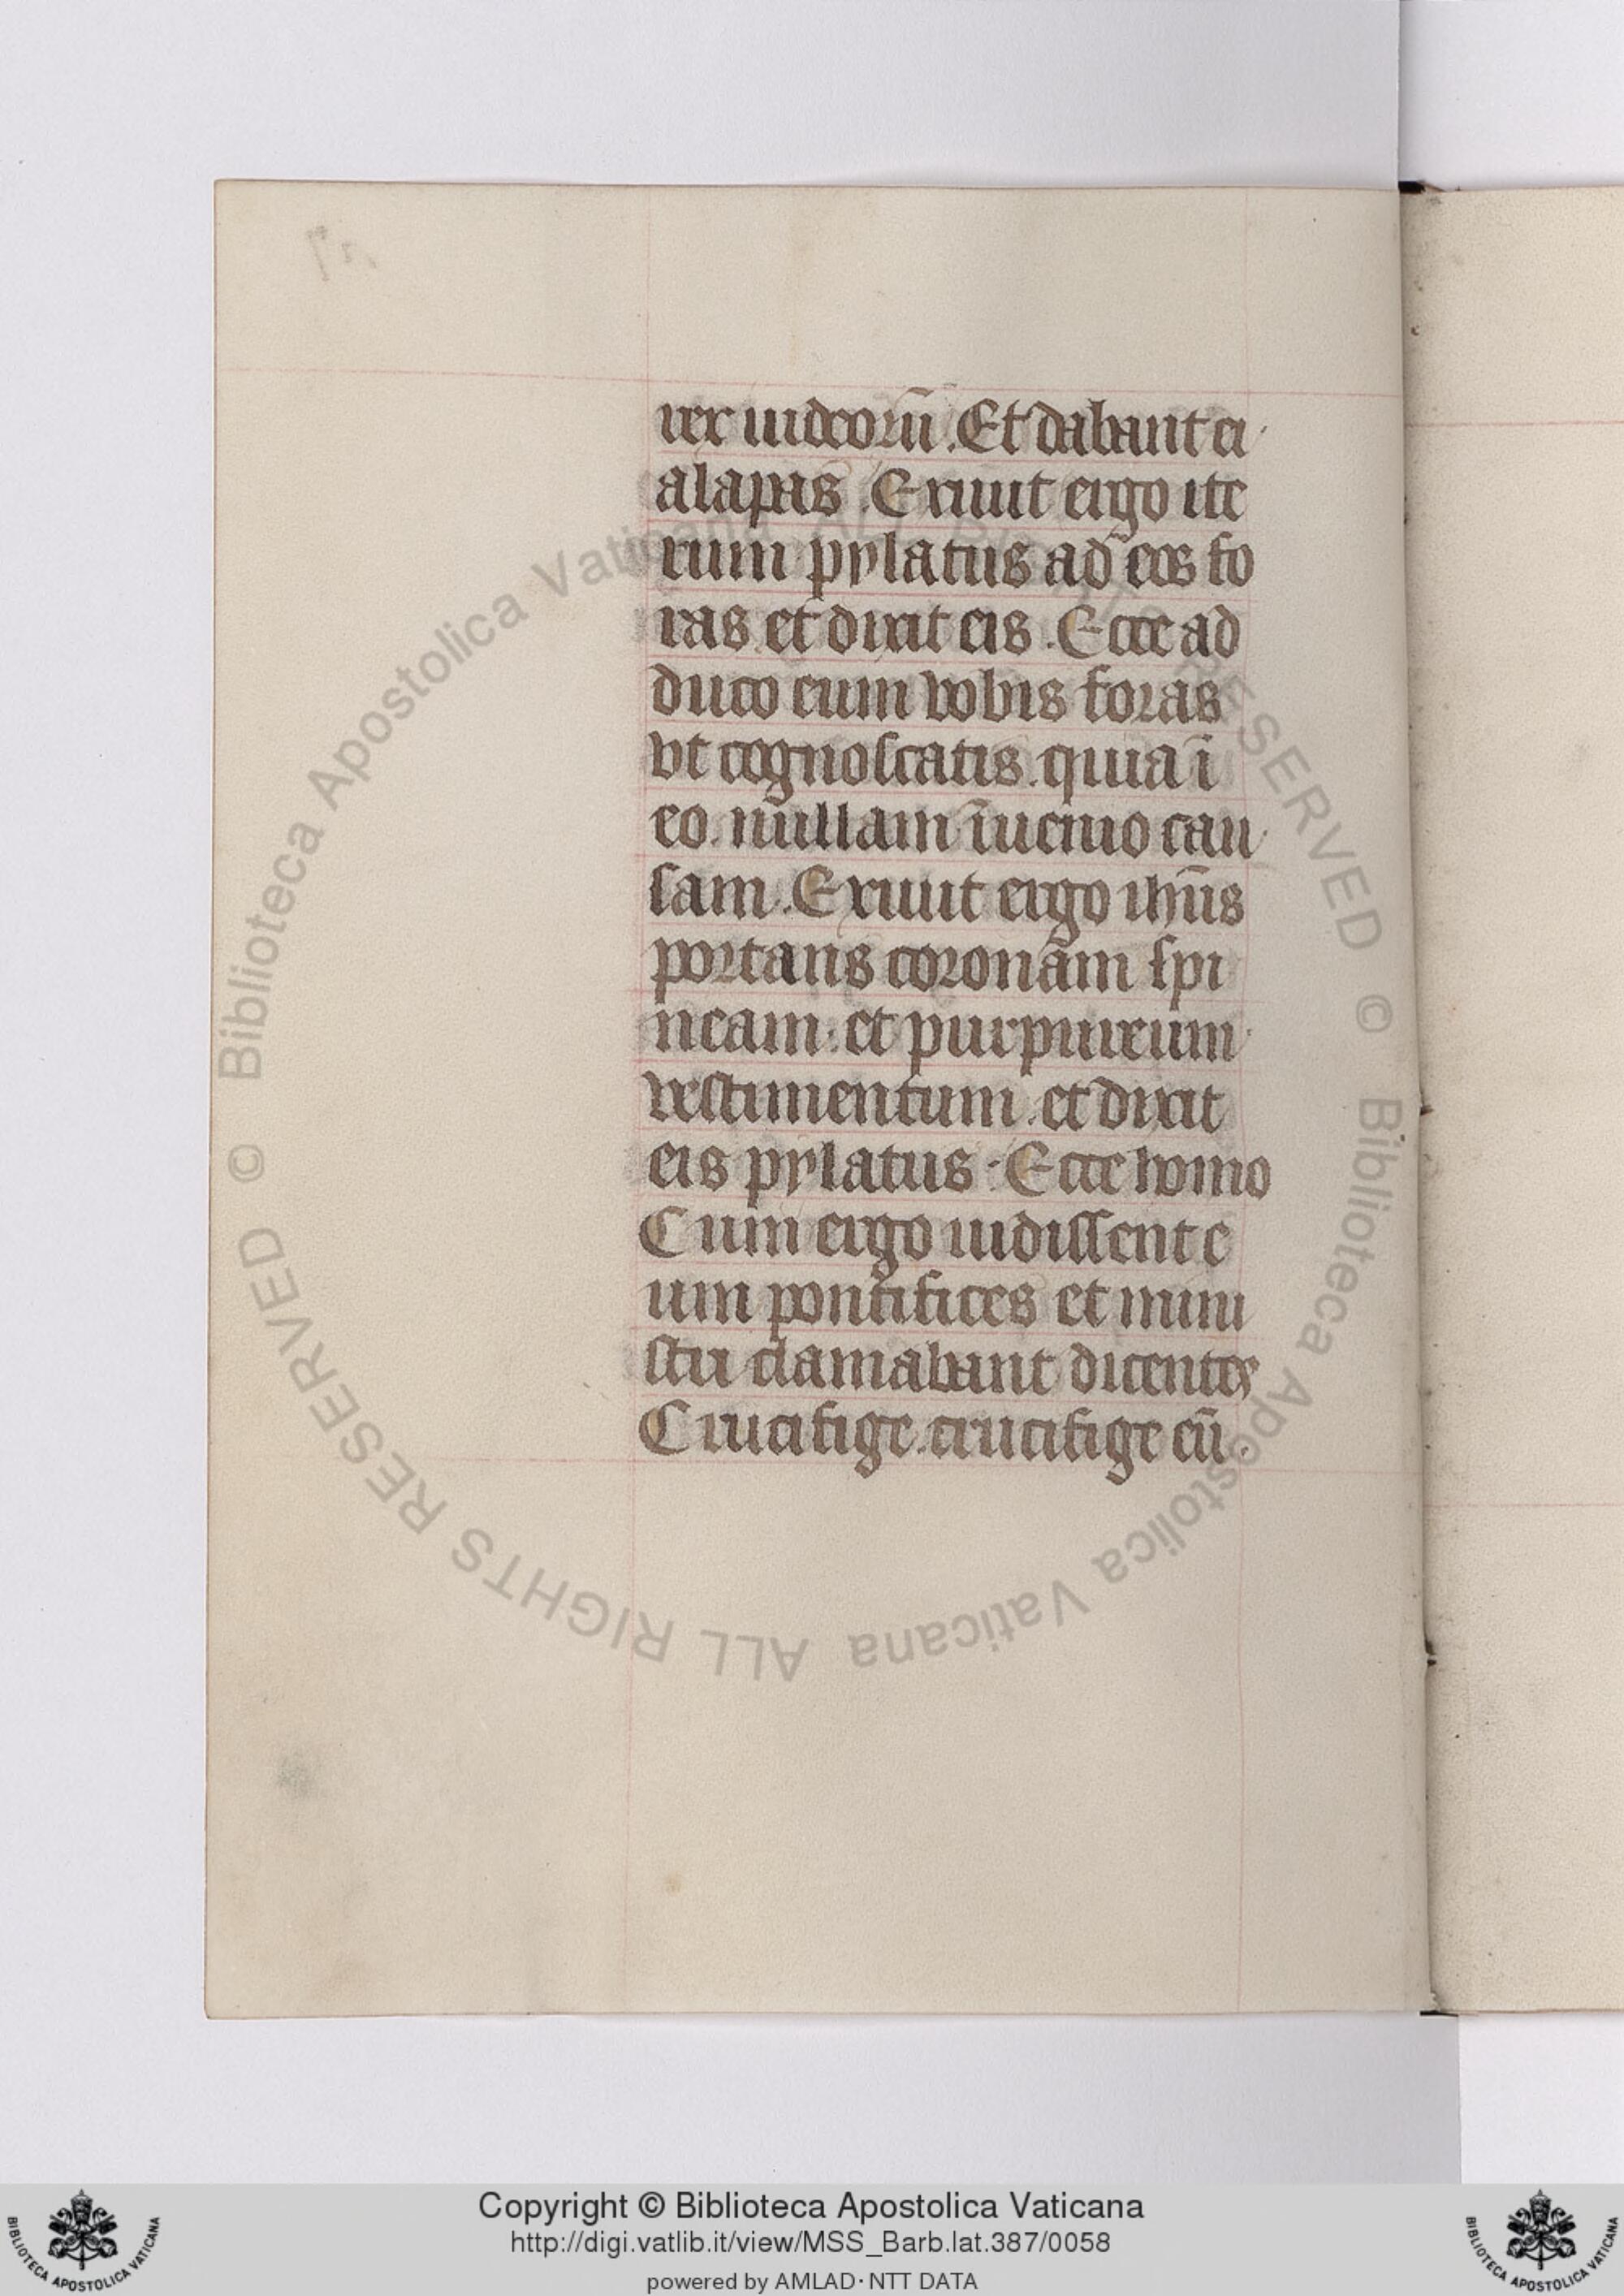 rex iudeorū. Et dabant ei
alapas. Exiuit ergo ite
rum pylatus ad eos fo
ras et dixit eis. Ecce ad
duco eum vobis foras
vt cognoscatis. quia ī
eo. nullam īuenio cau
sam. Exiuit ergo ihūs
portans coronam spi
neam. et purpureum
vestimentum. et dixit
eis pylatus. Ecce homo
Cum ergo uidissent e
um pontifices et mini
stri clamabant dicentes
Crucifige. crucifige eū.
© Biblioteca Apostolica Vaticana ALL RIGHTS RESERVED © Biblioteca Apostolica Vaticana ALL RIGHTS RESERVED
Copyright © Biblioteca Apostolica Vaticana
http://digi.vatlib.it/view/MSS_Barb.lat.387/0058
powered by AMLAD·NTT DATA
BIBLIOTECA APOSTOLICA VATICANA
BIBLIOTECA APOSTOLICA VATICANA